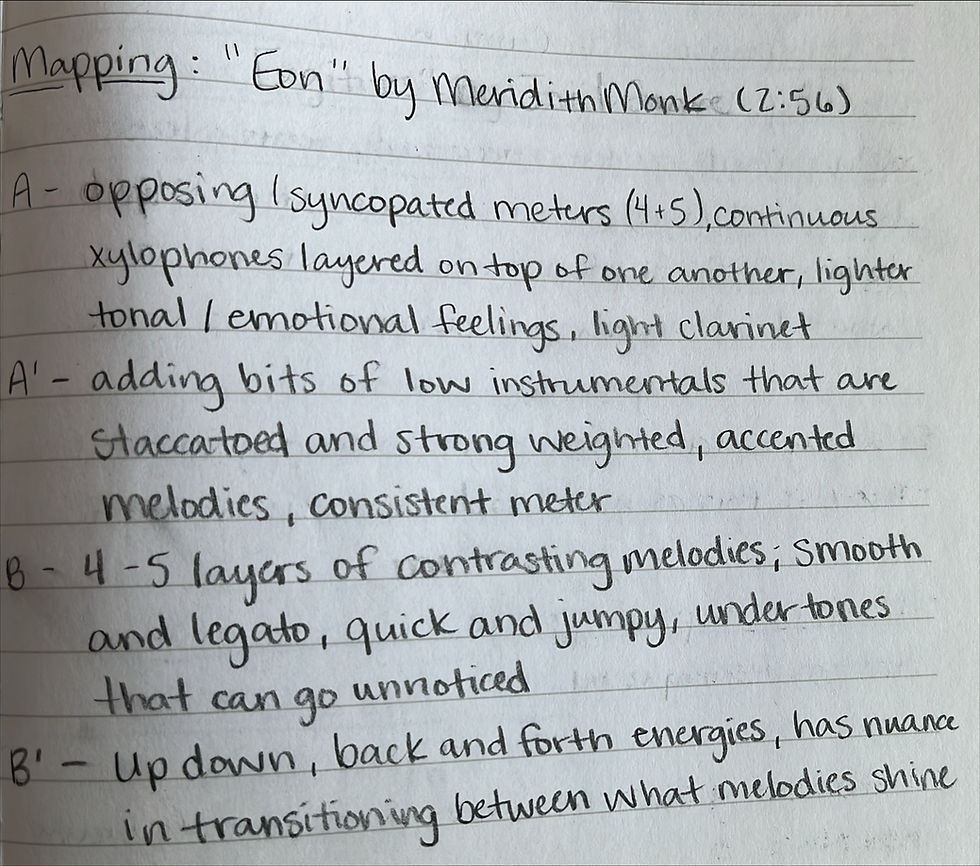 Mapping: "Eon" by Meridith Monk (2:56)
A - opposing / syncopated meters (4+5), continuous
xylophones layered on top of one another, lighter
tonal / emotional feelings, light clarinet
A' - adding bits of low instrumentals that are
staccatoed and strong weighted, accented
melodies, consistent meter
B - 4-5 layers of contrasting melodies; smooth
and legato, quick and jumpy, undertones
that can go unnoticed
B' - Up down, back and forth energies, has nuance
in transitioning between what melodies shine